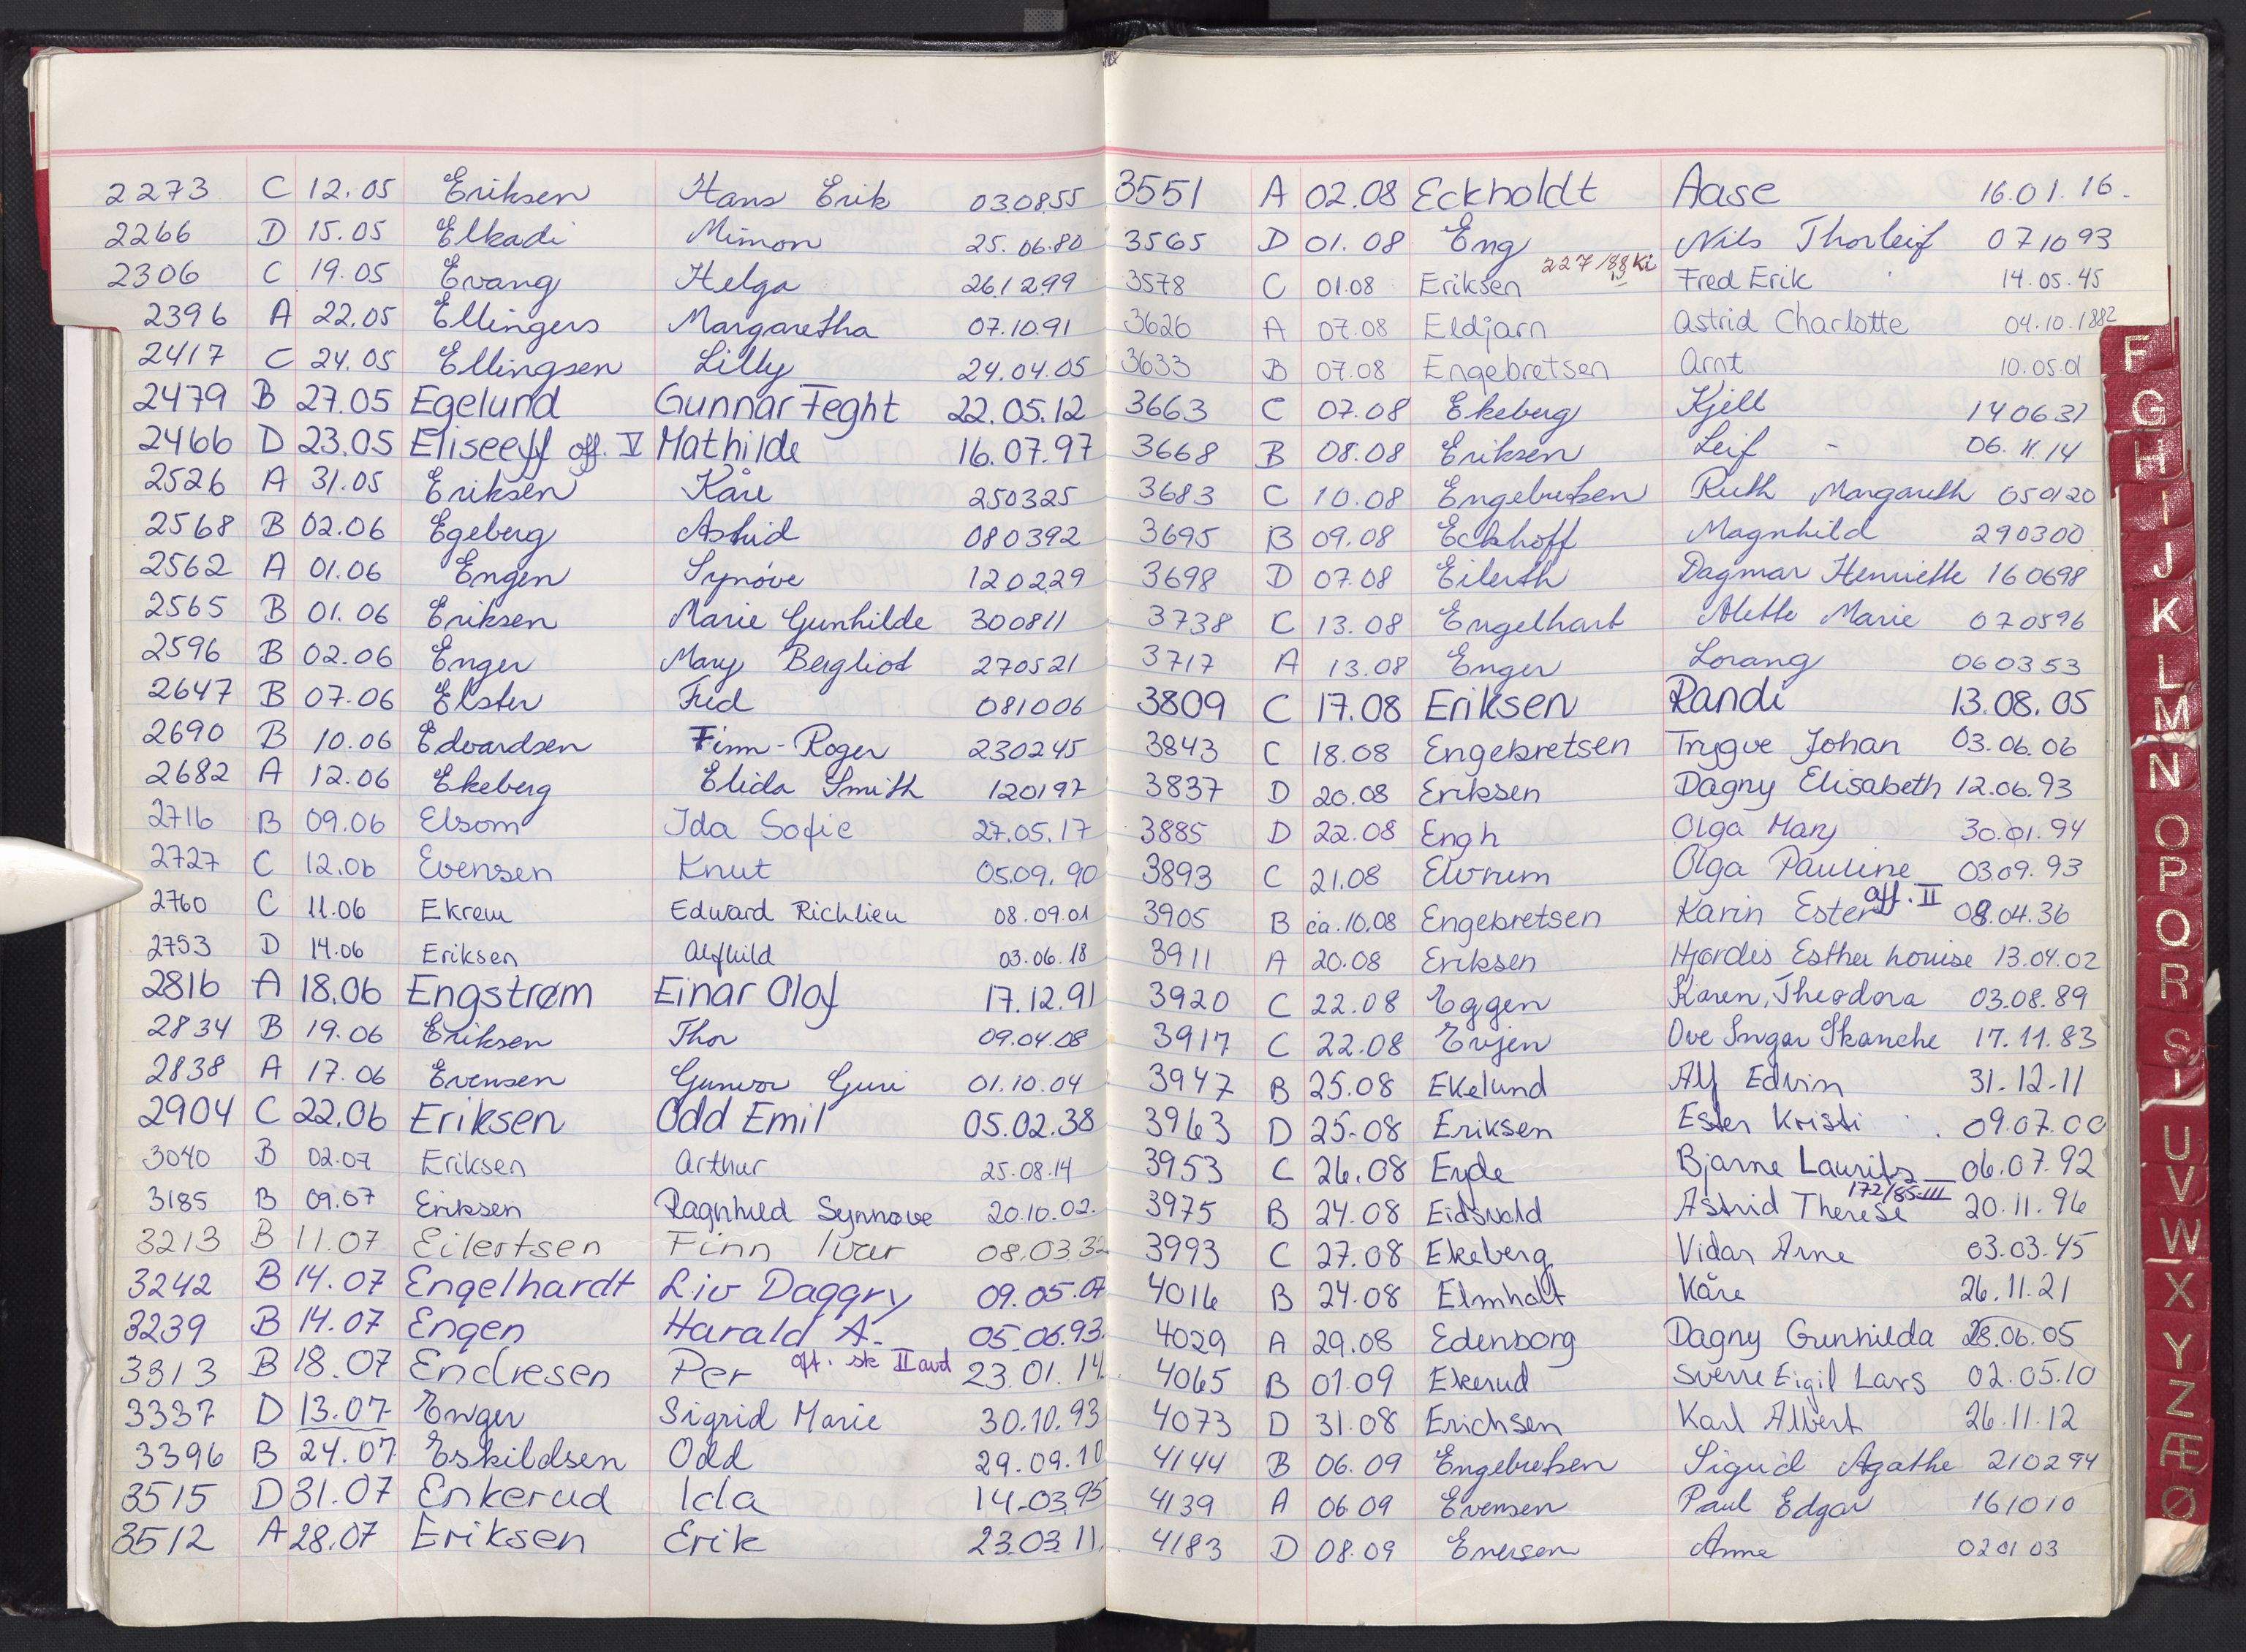 2273 C 12.05 Eriksen Hans Erik 030855
2266 D 15.05 Elkadi Mimon 25.06.80
2306 C 19.05 Evang Helga 261299
2396 A 22.05 Ellingers Margaretha 07.10.91
2417 C 24.05 Ellingsen Lilly 24.04.05
2479 B 27.05 Egelund Gunnar Feght 22.05.12
2466 D 23.05 Eliseeff off. V Mathilde 16.07.97
2526 A 31.05 Eriksen Kåre 250325
2568 B 02.06 Egeberg Astrid 080392
2562 A 01.06 Engen Synøve 120229
2565 B 01.06 Eriksen Marie Gunhilde 300811
2596 B 02.06 Enger Mary Bergliot 270521
2647 B 07.06 Elster Fred 081006
2690 B 10.06 Edvardsen Finn-Roger 230245
2682 A 12.06 Ekeberg Elida Smith 120197
2716 B 09.06 Elsom Ida Sofie 27.05.17
2727 C 12.06 Evensen Knut 05.09.90
2760 C 11.06 Ekrem Edward Richlieu 08.09.01
2753 D 14.06 Eriksen Alfhild 03.06.18
2816 A 18.06 Engstrøm Einar Olof 17.12.91
2834 B 19.06 Eriksen Thor 09.04.08
2838 A 17.06 Evensen Gunvor Guri 01.10.04
2904 C 22.06 Eriksen Odd Emil 05.02.38
3040 B 02.07 Eriksen Arthur 25.08.14
3185 B 09.07 Eriksen Ragnhild Synnøve 20.10.02.
3213 B 11.07 Eilertsen Finn Ivar 08.03.32
3242 B 14.07 Engelhardt Liv Daggry 09.05.07
3239 B 14.07 Engen Harald A. 05.06.93.
3313 B 18.07 Endresen Per off. sk II avd 23.01.14.
3337 D 13.07 Enger Sigrid Marie 30.10.93
3396 B 24.07 Eskildsen Odd 29.09.10
3515 D 31.07 Enkerud Ida 14.03.95
3512 A 28.07 Eriksen Erik 23.03.11.
3551 A 02.08 Eckholdt Aase 16.01.16.
3565 D 01.08 Eng Nils Thorleif 071093
3578 C 01.08 Eriksen 227/88 Ki Fred Erik 14.05.45
3626 A 07.08 Eldjarn Astrid Charlotte 04.10.1882
3633 B 07.08 Engebretsen Arnt 10.05.01
3663 C 07.08 Ekeberg Kjell 140637
3668 B 08.08 Eriksen Leif - 06.11.14
3683 C 10.08 Engebretsen Ruth Margareth 050120
3695 B 09.08 Eckhoff Magnhild 290300
3698 D 07.08 Eilerth Dagmar Henriette 160698
3738 C 13.08 Engelhart Alette Marie 070596
3717 A 13.08 Enger Lorang 060353
3809 C 17.08 Eriksen Randi 13.08.05
3843 C 18.08 Engebretsen Trygve Johan 03.06.06
3837 D 20.08 Eriksen Dagny Elisabeth 12.06.93
3885 D 22.08 Engh Olga Mary 30.01.94
3893 C 21.08 Elvrum Olga Pauline 03.09.93
3905 B ca. 10.08 Engebretsen Karin Ester off. II 08.04.36
3911 A 20.08 Eriksen Hjørdis Esther Louise 13.04.02
3920 C 22.08 Eggen Karen, Theodora 03.08.89
3917 C 22.08 Evjen Ove Ingar Skanche 17.11.83
3947 B 25.08 Ekelund Alf Edvin 31.12.11
3963 D 25.08 Eriksen Ester Kristi 09.07.00
3953 C 26.08 Eyde Bjarne Laurits 06.07.92
3975 B 24.08 Eidsvold Astrid Therese 172/85-III 20.11.96
3993 C 27.08 Ekeberg Vidar Arne 03.03.45
4016 B 24.08 Elmholt Kåre 26.11.21
4029 A 29.08 Edenborg Dagny Gunhilda 28.06.05
4065 B 01.09 Ekerud Sverre Eigil Lars 02.05.10
4073 D 31.08 Erichsen Karl Albert 26.11.12
4144 B 06.09 Engebretsen Sigrid Agathe 210294
4139 A 06.09 Evensen Paul Edgar 161010
4183 D 08.09 Enersen Anne 020103
F
G
H
I
J
K
L
M
N
O
P
Q
R
S
T
U
V
W
X
Y
Z
Æ
Ø